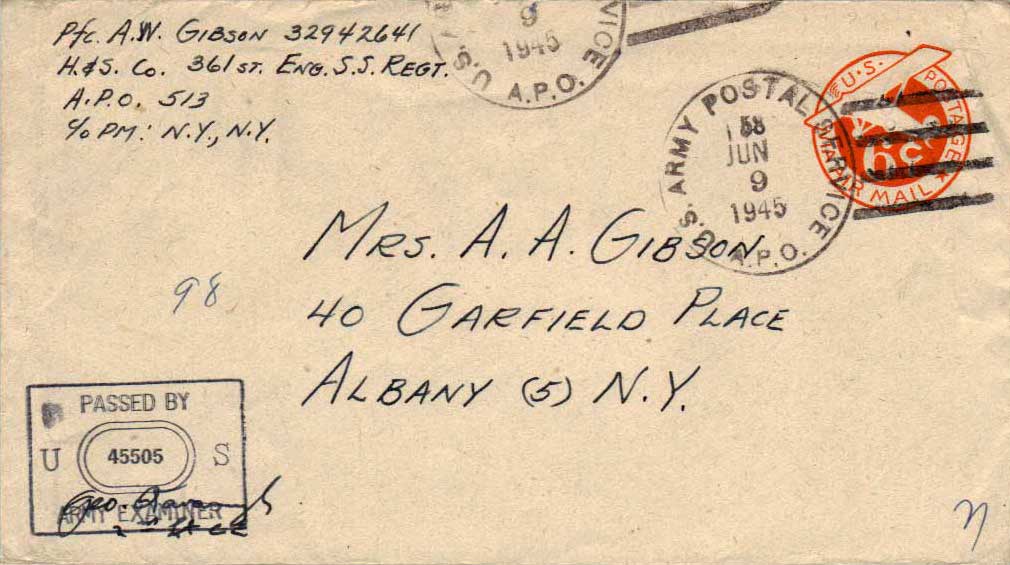 Pfc. A.W. GIBSON 32942641
H.&S. Co. 361ST. ENG. S.S. REGT.
A.P.O. 513
c/o PM: N.Y., N.Y.
9
1945
U.S.
VICE
A.P.O.
U.S. ARMY POSTAL SERVICE
JUN
9
1945
A.P.O.
U.S. POSTAGE
6c
VIA AIR MAIL
MRS. A. A. GIBSON
40 GARFIELD PLACE
ALBANY (5) N.Y.
98
PASSED BY
U 45505 S
Geo.
ARMY EXAMINER